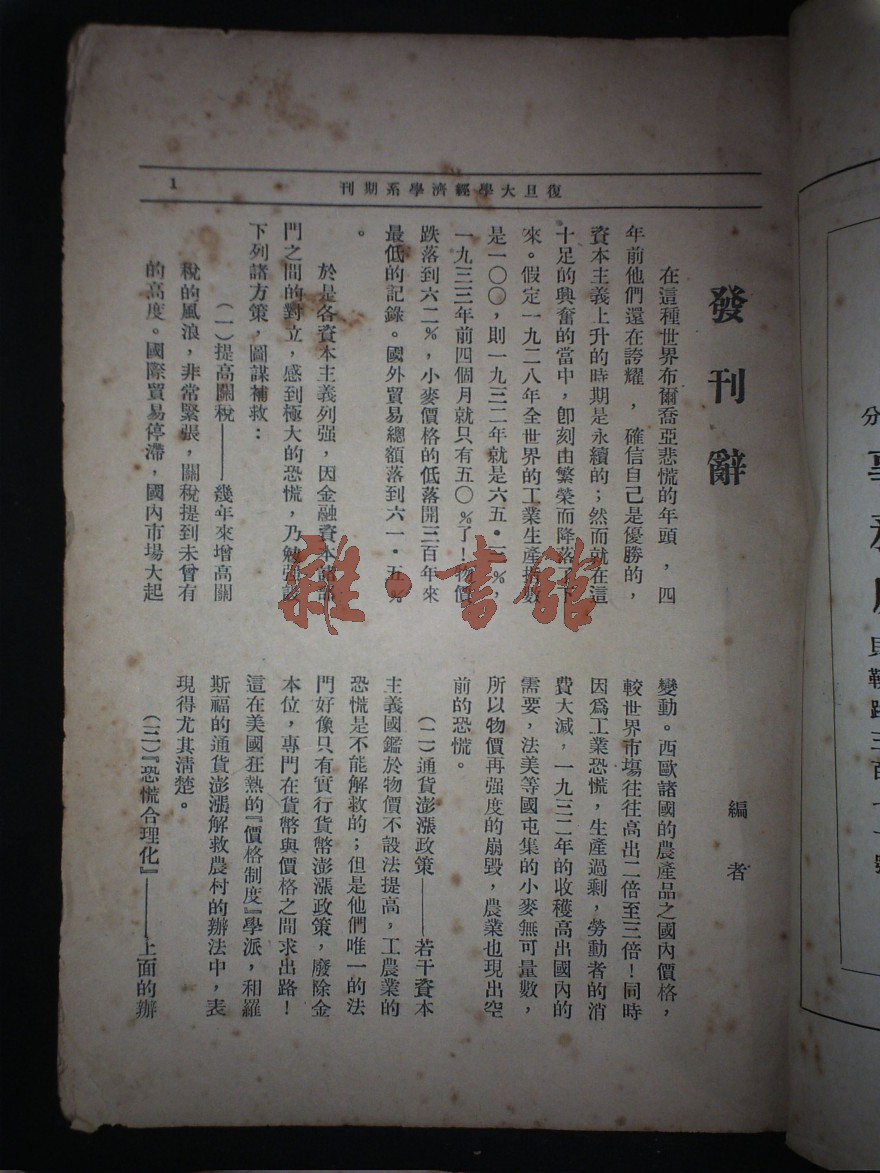 復旦大學經濟學系期刊
1
發刊辭
編者
在這種世界布爾喬亞悲慌的年頭，四
年前他們還在誇耀，確信自己是優勝的，
資本主義上升的時期是永續的；然而就在這
十足的興奮的當中，卽刻由繁榮而降落下
來。假定一九二八年全世界的工業生產指數
是一〇〇，則一九三二年就是六五・%，
一九三三年前四個月就只有五〇%了！物價
跌落到六二%，小麥價格的低落開三百年來
最低的記錄。國外貿易總額落到六一・五%
。
於是各資本主義列强，因金融資本諸部
門之間的對立，感到極大的恐慌，乃勉强設
下列諸方策，圖謀補救：
（一）提高關稅——幾年來增高關
稅的風浪，非常緊張，關稅提到未曾有
的高度。國際貿易停滯，國內市場大起
變動。西歐諸國的農產品之國內價格，
較世界市場往往高出二倍至三倍！同時
因爲工業恐慌，生產過剩，勞動者的消
費大減，一九三二年的收穫高出國內的
需要，法美等國屯集的小麥無可量數，
所以物價再强度的崩毀，農業也現出空
前的恐慌。
（二）通貨澎漲政策——若干資本
主義國鑑於物價不設法提高，工農業的
恐慌是不能解救的；但是他們唯一的法
門好像只有實行貨幣澎漲政策，廢除金
本位，專門在貨幣與價格之間求出路！
這在美國狂熱的『價格制度』學派，和羅
斯福的通貨澎漲解救農村的辦法中，表
現得尤其淸楚。
（三）『恐慌合理化』——上面的辦
雜・書館
分
三百七十一號